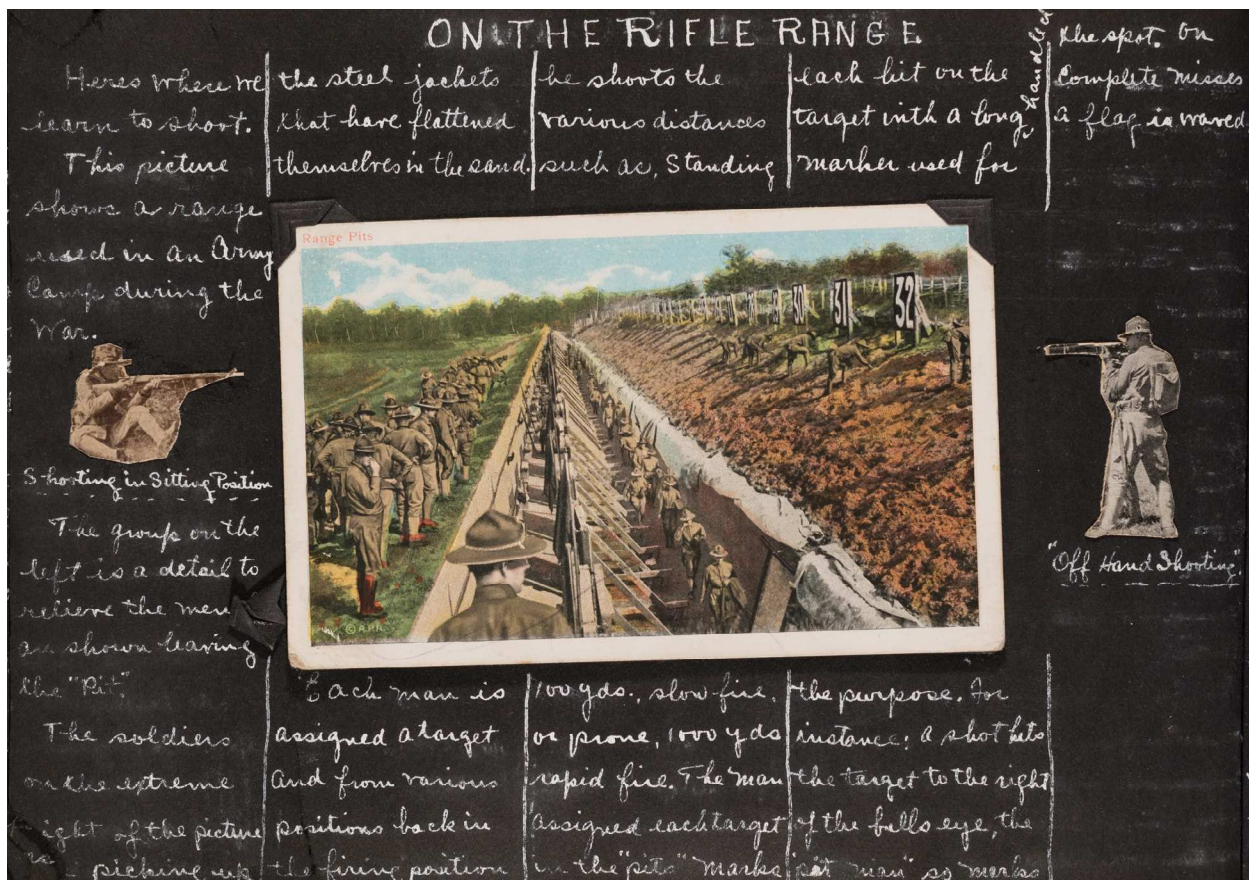 ON THE RIFLE RANGE
Heres where we
learn to shoot.
This picture
shows a range
used in an Army
Camp during the
War.
Shooting in Sitting Position
The group on the
left is a detail to
relieve the men
shown leaving
the "Pit."
The soldiers
on the extreme
right of the picture
picking up
the steel jackets
that have flattened
themselves in the sand.
Each man is
assigned a target
and from various
positions back in
the firing position
he shoots the
various distances
such as, Standing
100 yds., slow fire,
or prone, 1000 yds
rapid fire. The man
assigned each target
in the "pits" marks
each hit on the
target with a long
handled
marker used for
the purpose. For
instance; a shot hits
the target to the right
of the bulls eye, the
"pit man" so marks
the spot. On
Complete misses
a flag is waved
"Off Hand Shooting"
Range Pits
28
29
30
31
32